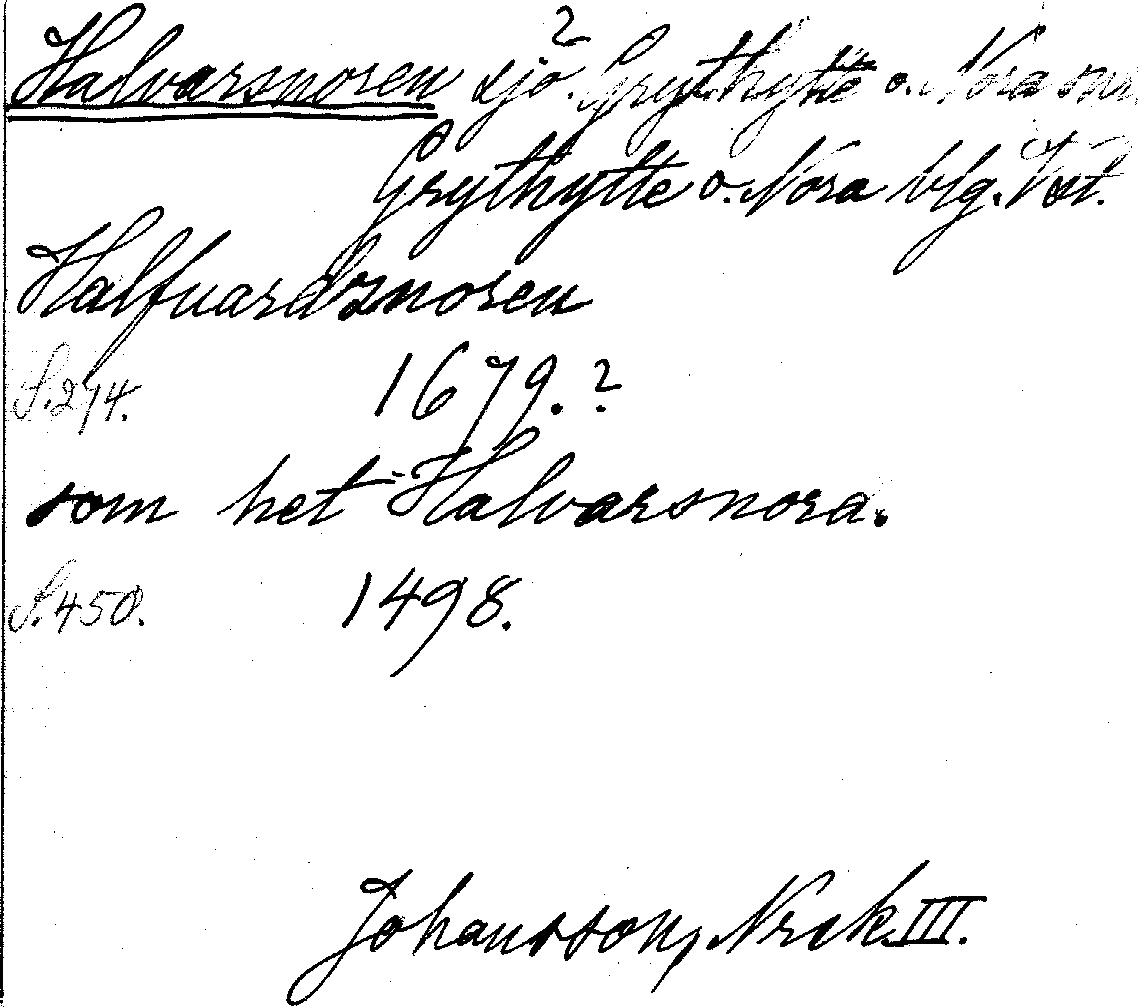 Halvarsnoren sjö? Grythytte o. Nora snr
Grythytte o. Nora blg. Vst.
Halfuardsnoren
S.274. 1679.?
som het Halvarsnora.
S.450. 1498.
Johansson, Nrck III.